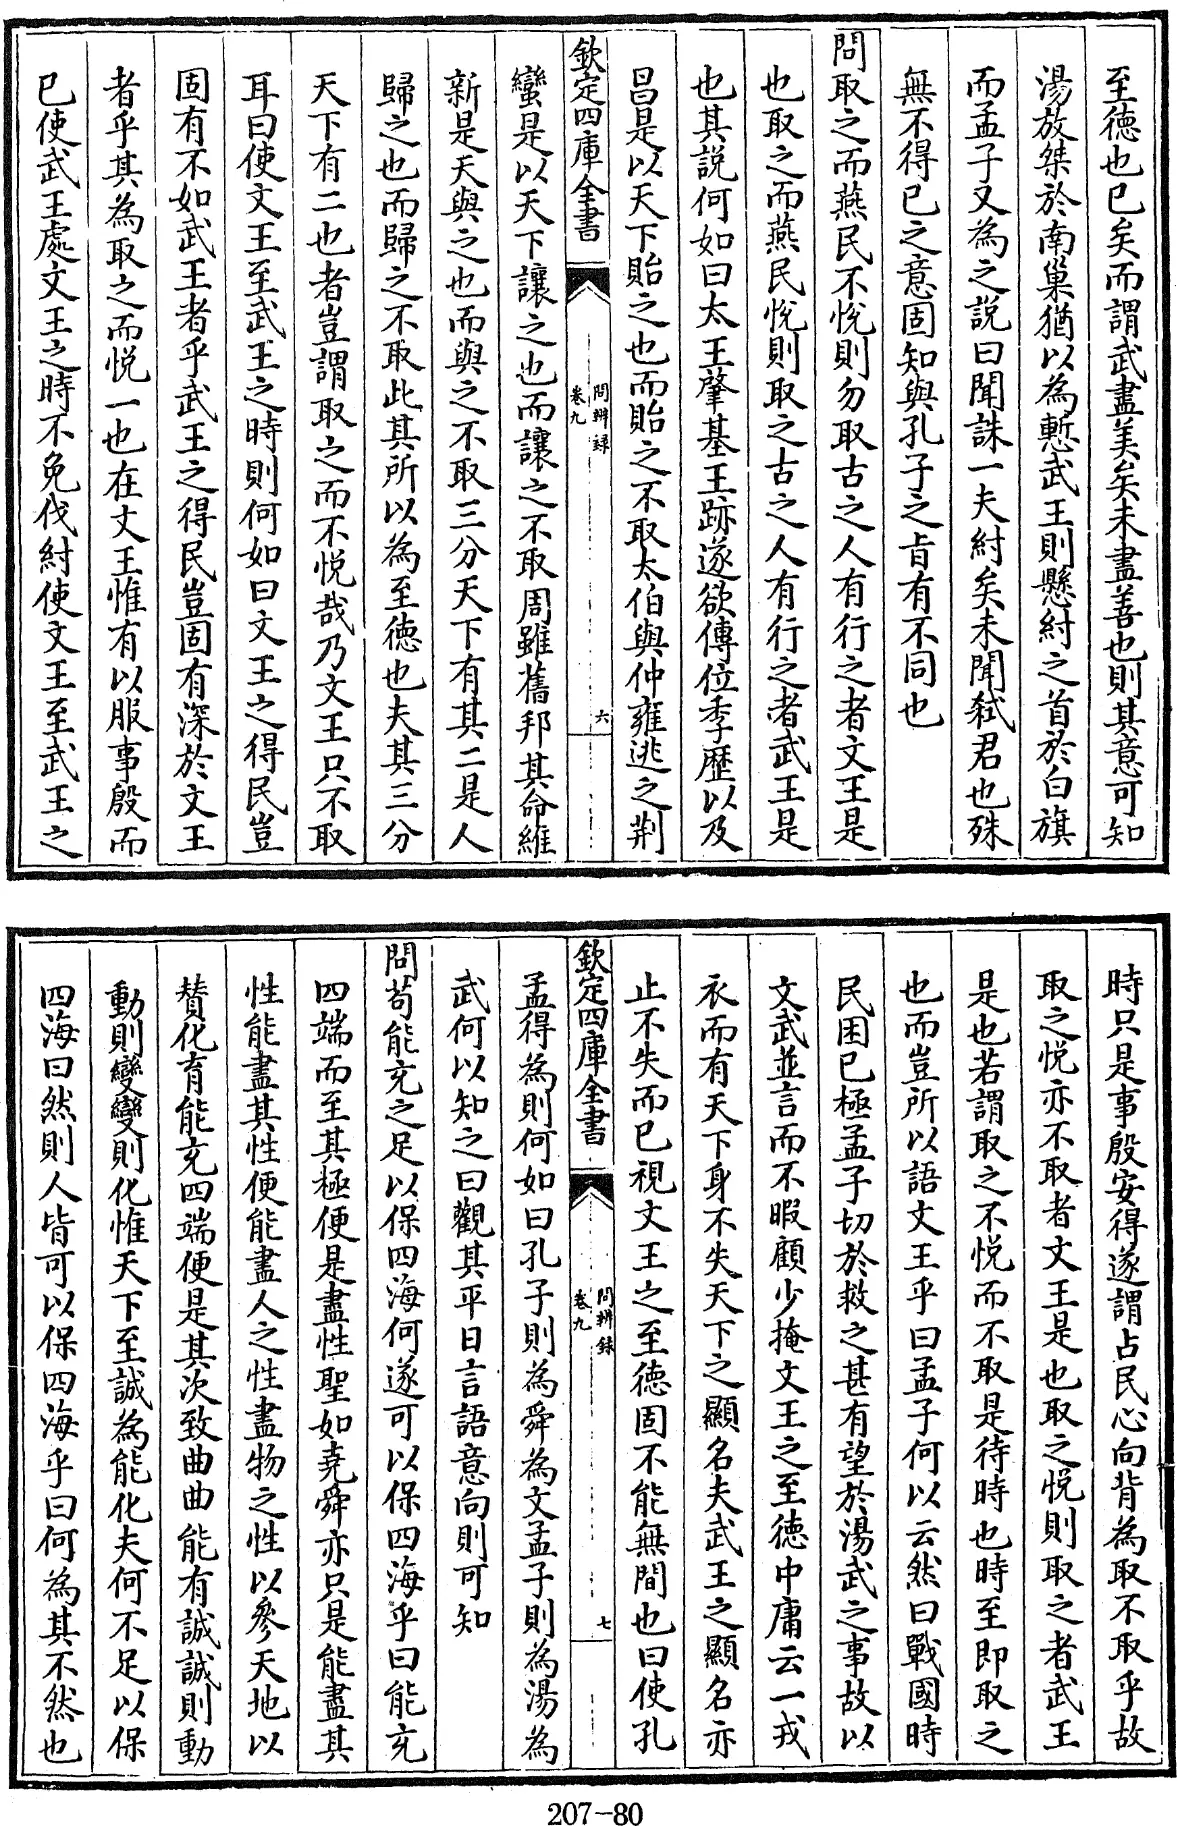 至徳也已矣而謂武盡美矣未盡善也則其意可知
湯放桀於南巢猶以為慙武王則懸紂之首於白旗
而孟子又為之説曰聞誅一夫紂矣未聞弑君也殊
無不得已之意固知與孔子之㫖有不同也
問取之而燕民不悦則勿取古之人有行之者文王是
也取之而燕民悦則取之古之人有行之者武王是
也其説何如曰太王肇基王跡遂欲傳位季歴以及
昌是以天下貽之也而貽之不取太伯與仲雍逃之荆
欽定四庫全書
問辨録
卷九
六
蠻是以天下讓之也而讓之不取周雖舊邦其命維
新是天與之也而與之不取三分天下有其二是人
歸之也而歸之不取此其所以為至徳也夫其三分
天下有二也者豈謂取之而不悦哉乃文王只不取
耳曰使文王至武王之時則何如曰文王之得民豈
固有不如武王者乎武王之得民豈固有深於文王
者乎其為取之而悦一也在文王惟有以服事殷而
已使武王處文王之時不免伐紂使文王至武王之
時只是事殷安得遂謂占民心向背為取不取乎故
取之悦亦不取者文王是也取之悦則取之者武王
是也若謂取之不悦而不取是待時也時至即取之
也而豈所以語文王乎曰孟子何以云然曰戰國時
民困已極孟子切於救之甚有望於湯武之事故以
文武並言而不暇顧少掩文王之至徳中庸云一戎
衣而有天下身不失天下之顯名夫武王之顯名亦
止不失而已視文王之至徳固不能無間也曰使孔
欽定四庫全書
問辨録
卷九
七
孟得為則何如曰孔子則為舜為文孟子則為湯為
武何以知之曰觀其平日言語意向則可知
問苟能充之足以保四海何遂可以保四海乎曰能充
四端而至其極便是盡性聖如堯舜亦只是能盡其
性能盡其性便能盡人之性盡物之性以參天地以
賛化育能充四端便是其次致曲曲能有誠誠則動
動則變變則化惟天下至誠為能化夫何不足以保
四海曰然則人皆可以保四海乎曰何為其不然也
207-80